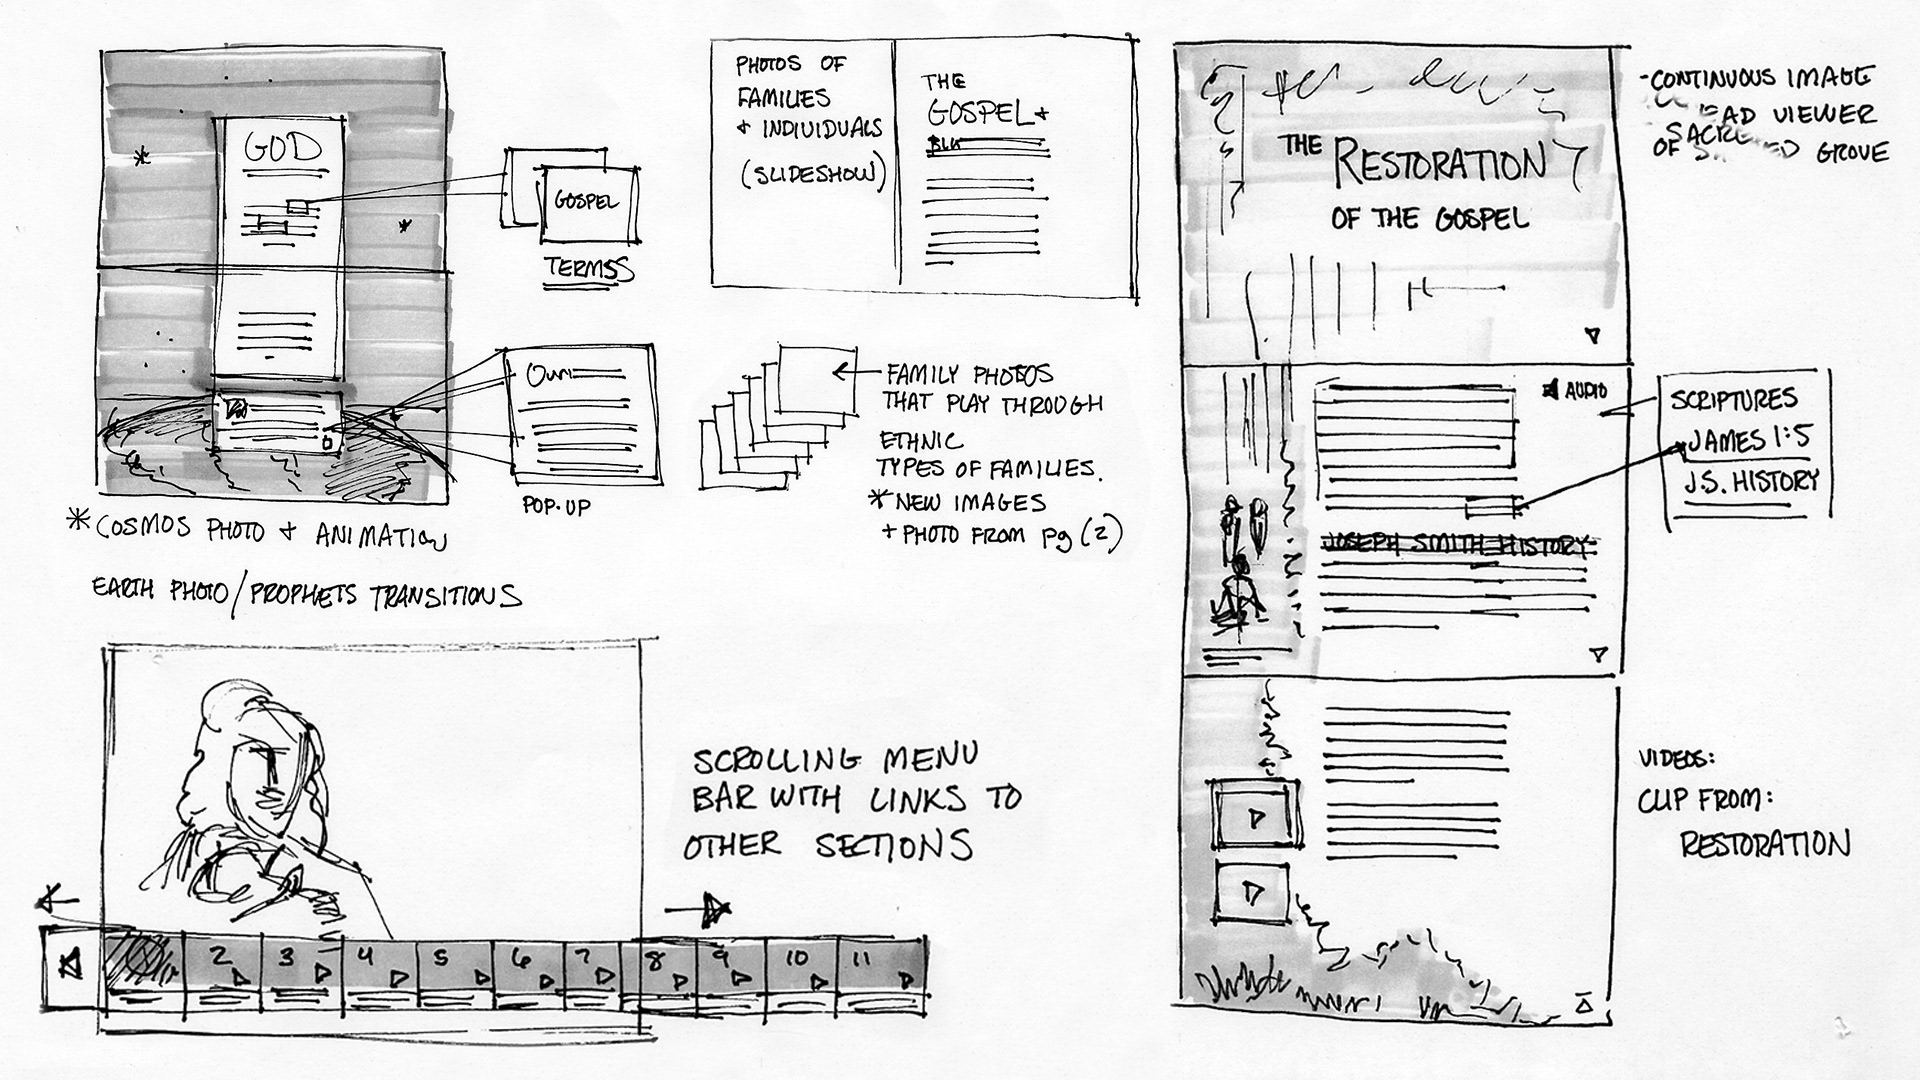 GOD
GOSPEL
TERMS
Our
POP-UP
* COSMOS PHOTO + ANIMATION
EARTH PHOTO/PROPHETS TRANSITIONS
PHOTOS OF
FAMILIES
+ INDIVIDUALS
(SLIDESHOW)
THE
GOSPEL +
FAMILY PHOTOS
THAT PLAY THROUGH
ETHNIC
TYPES OF FAMILIES.
* NEW IMAGES
+ PHOTO FROM pg (2)
SCROLLING MENU
BAR WITH LINKS TO
OTHER SECTIONS
2 3 4 5 6 7 8 9 10 11
THE RESTORATION
OF THE GOSPEL
- CONTINUOUS IMAGE
VIEWER
OF GROVE
AUDIO
SCRIPTURES
JAMES 1:5
J.S. HISTORY
JOSEPH SMITH HISTORY:
VIDEOS:
CLIP FROM:
RESTORATION